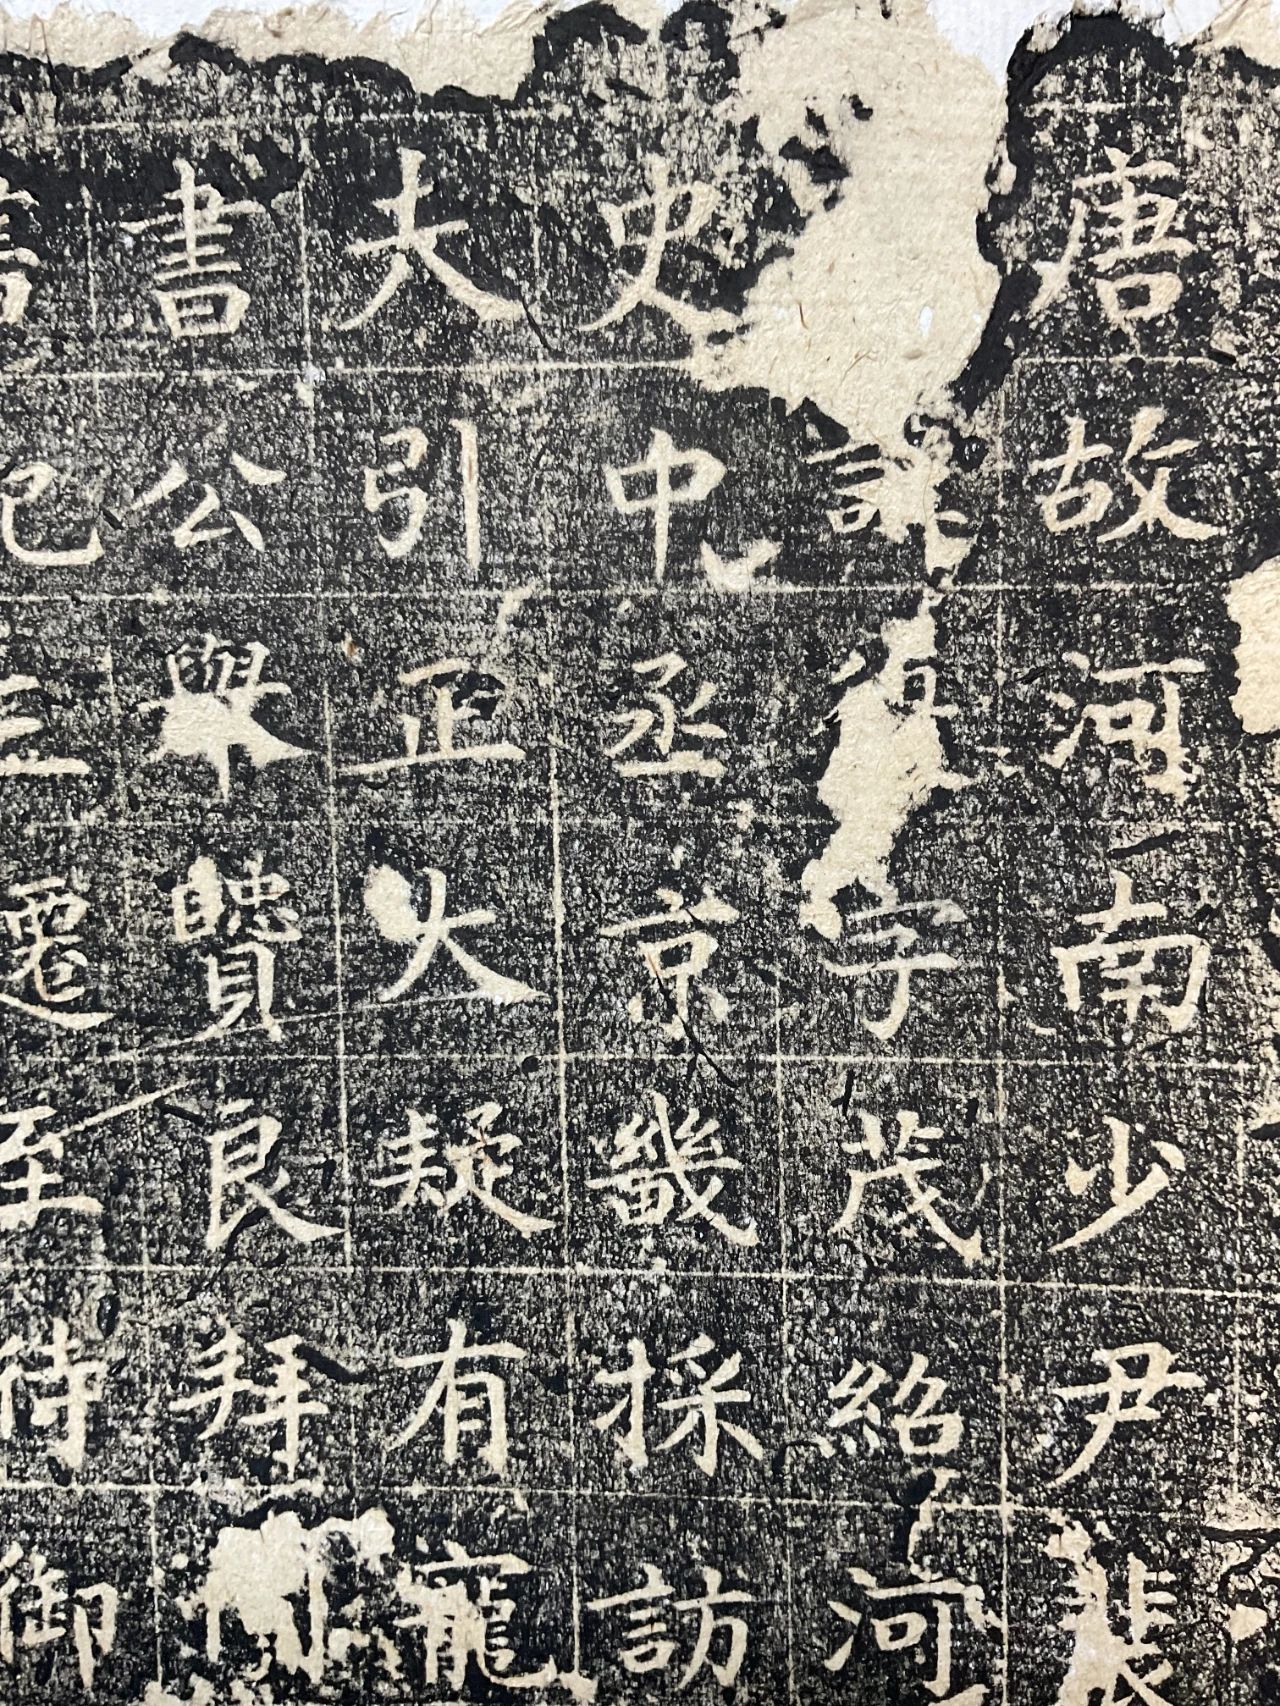 唐故河南少尹裴
諱復字茂紹河
史中丞京畿採訪
大引正大疑有寵
書公舉賢良拜
書記三遷至侍御